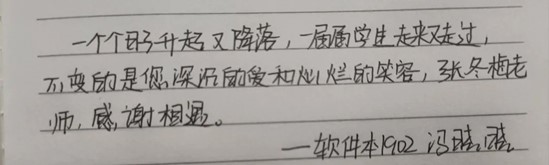 一个个日子升起又降落，一届届学生走来又走过，
不变的是您深沉的爱和灿烂的笑容，张冬梅老
师，感谢相遇。
——软件本1902 冯晴晴